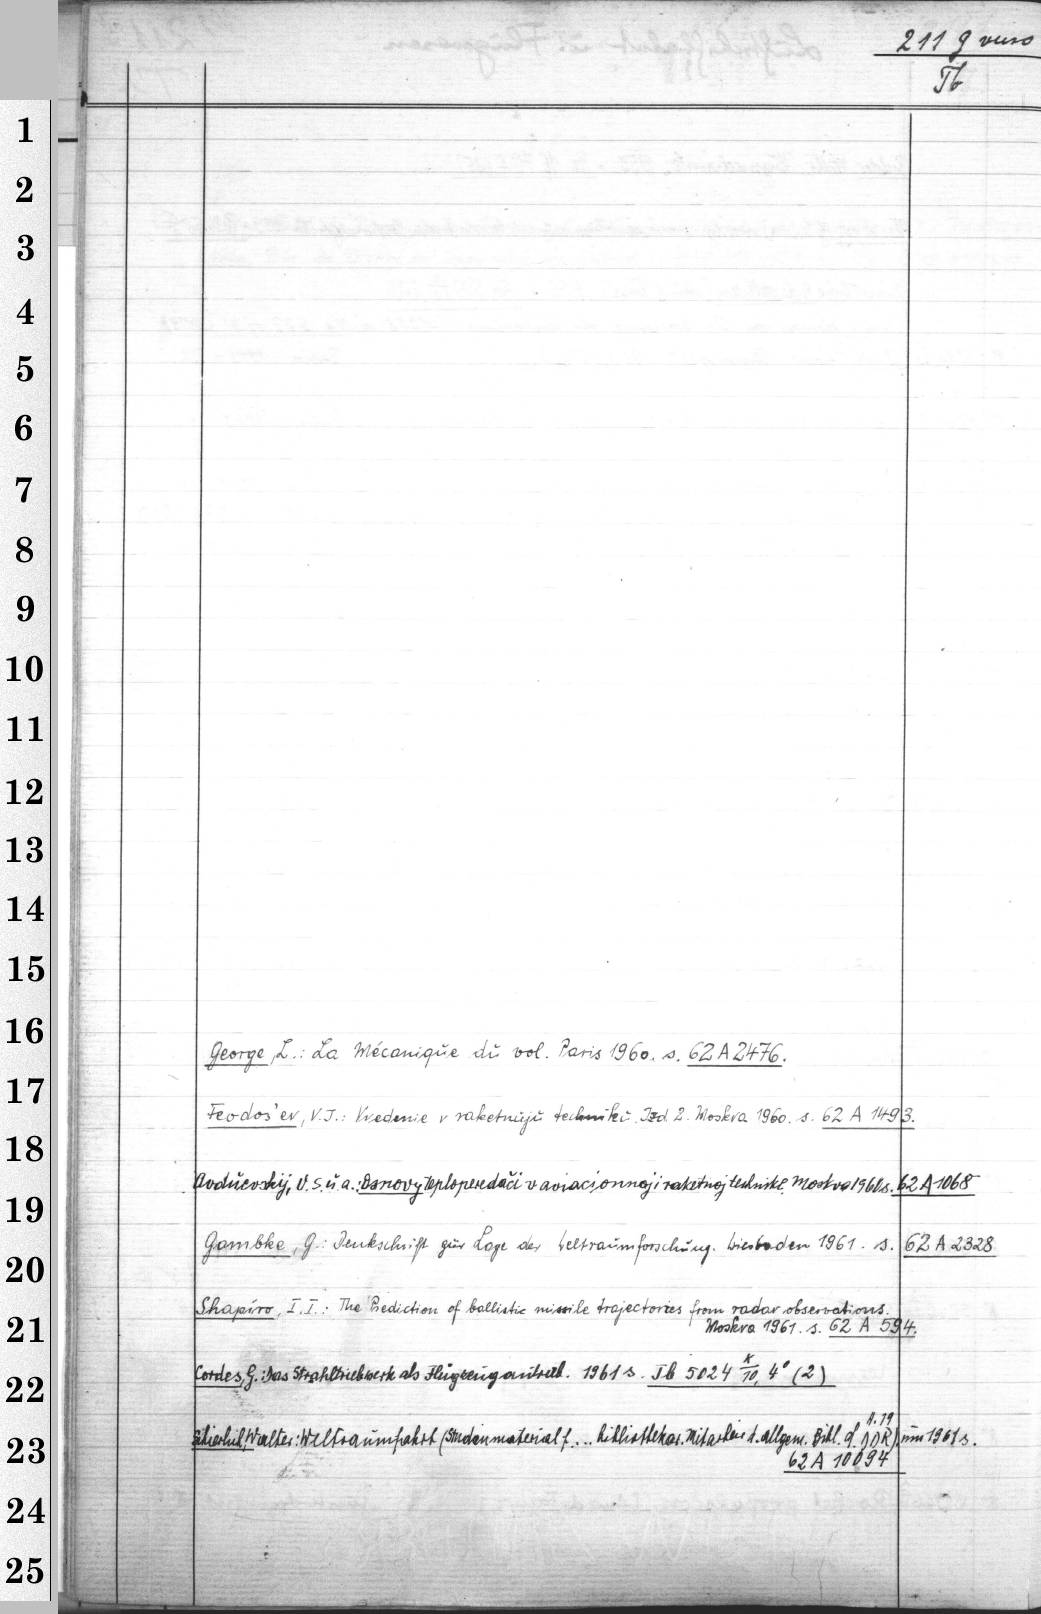 211 g verso
Tb
1
2
3
4
5
6
7
8
9
10
11
12
13
14
15
16
17
18
19
20
21
22
23
24
25
George, L.: La Mécanique du vol. Paris 1960. s. 62 A 2476.
Feodos'ev, V.J.: Vvedenie v raketnuju techniku. Izd. 2. Moskva 1960. s. 62 A 1493.
Avduevskij, V.S. u. a.: Osnovy teploperedači v aviacionnoj i raketnoj technike. Moskva 1960 s. 62 A 1068
Gambke, G.: Denkschrift zur Lage der Weltraumforschung. Wiesbaden 1961. s. 62 A 2328
Shapiro, I.I.: The Prediction of ballistic missile trajectories from radar observations.
Moskva 1961. s. 62 A 594.
Cordes, G.: Das Strahltriebwerk als Flugzeugantrieb. 1961 s. Tb 5024 K/10, 4° (2)
Walter: Weltraumfahrt (Studienmaterial f. ... bibliothekar. Mitarbeiter d. allgem. Bibl. d. DDR) 1961 s.
H. 19
62 A 10094